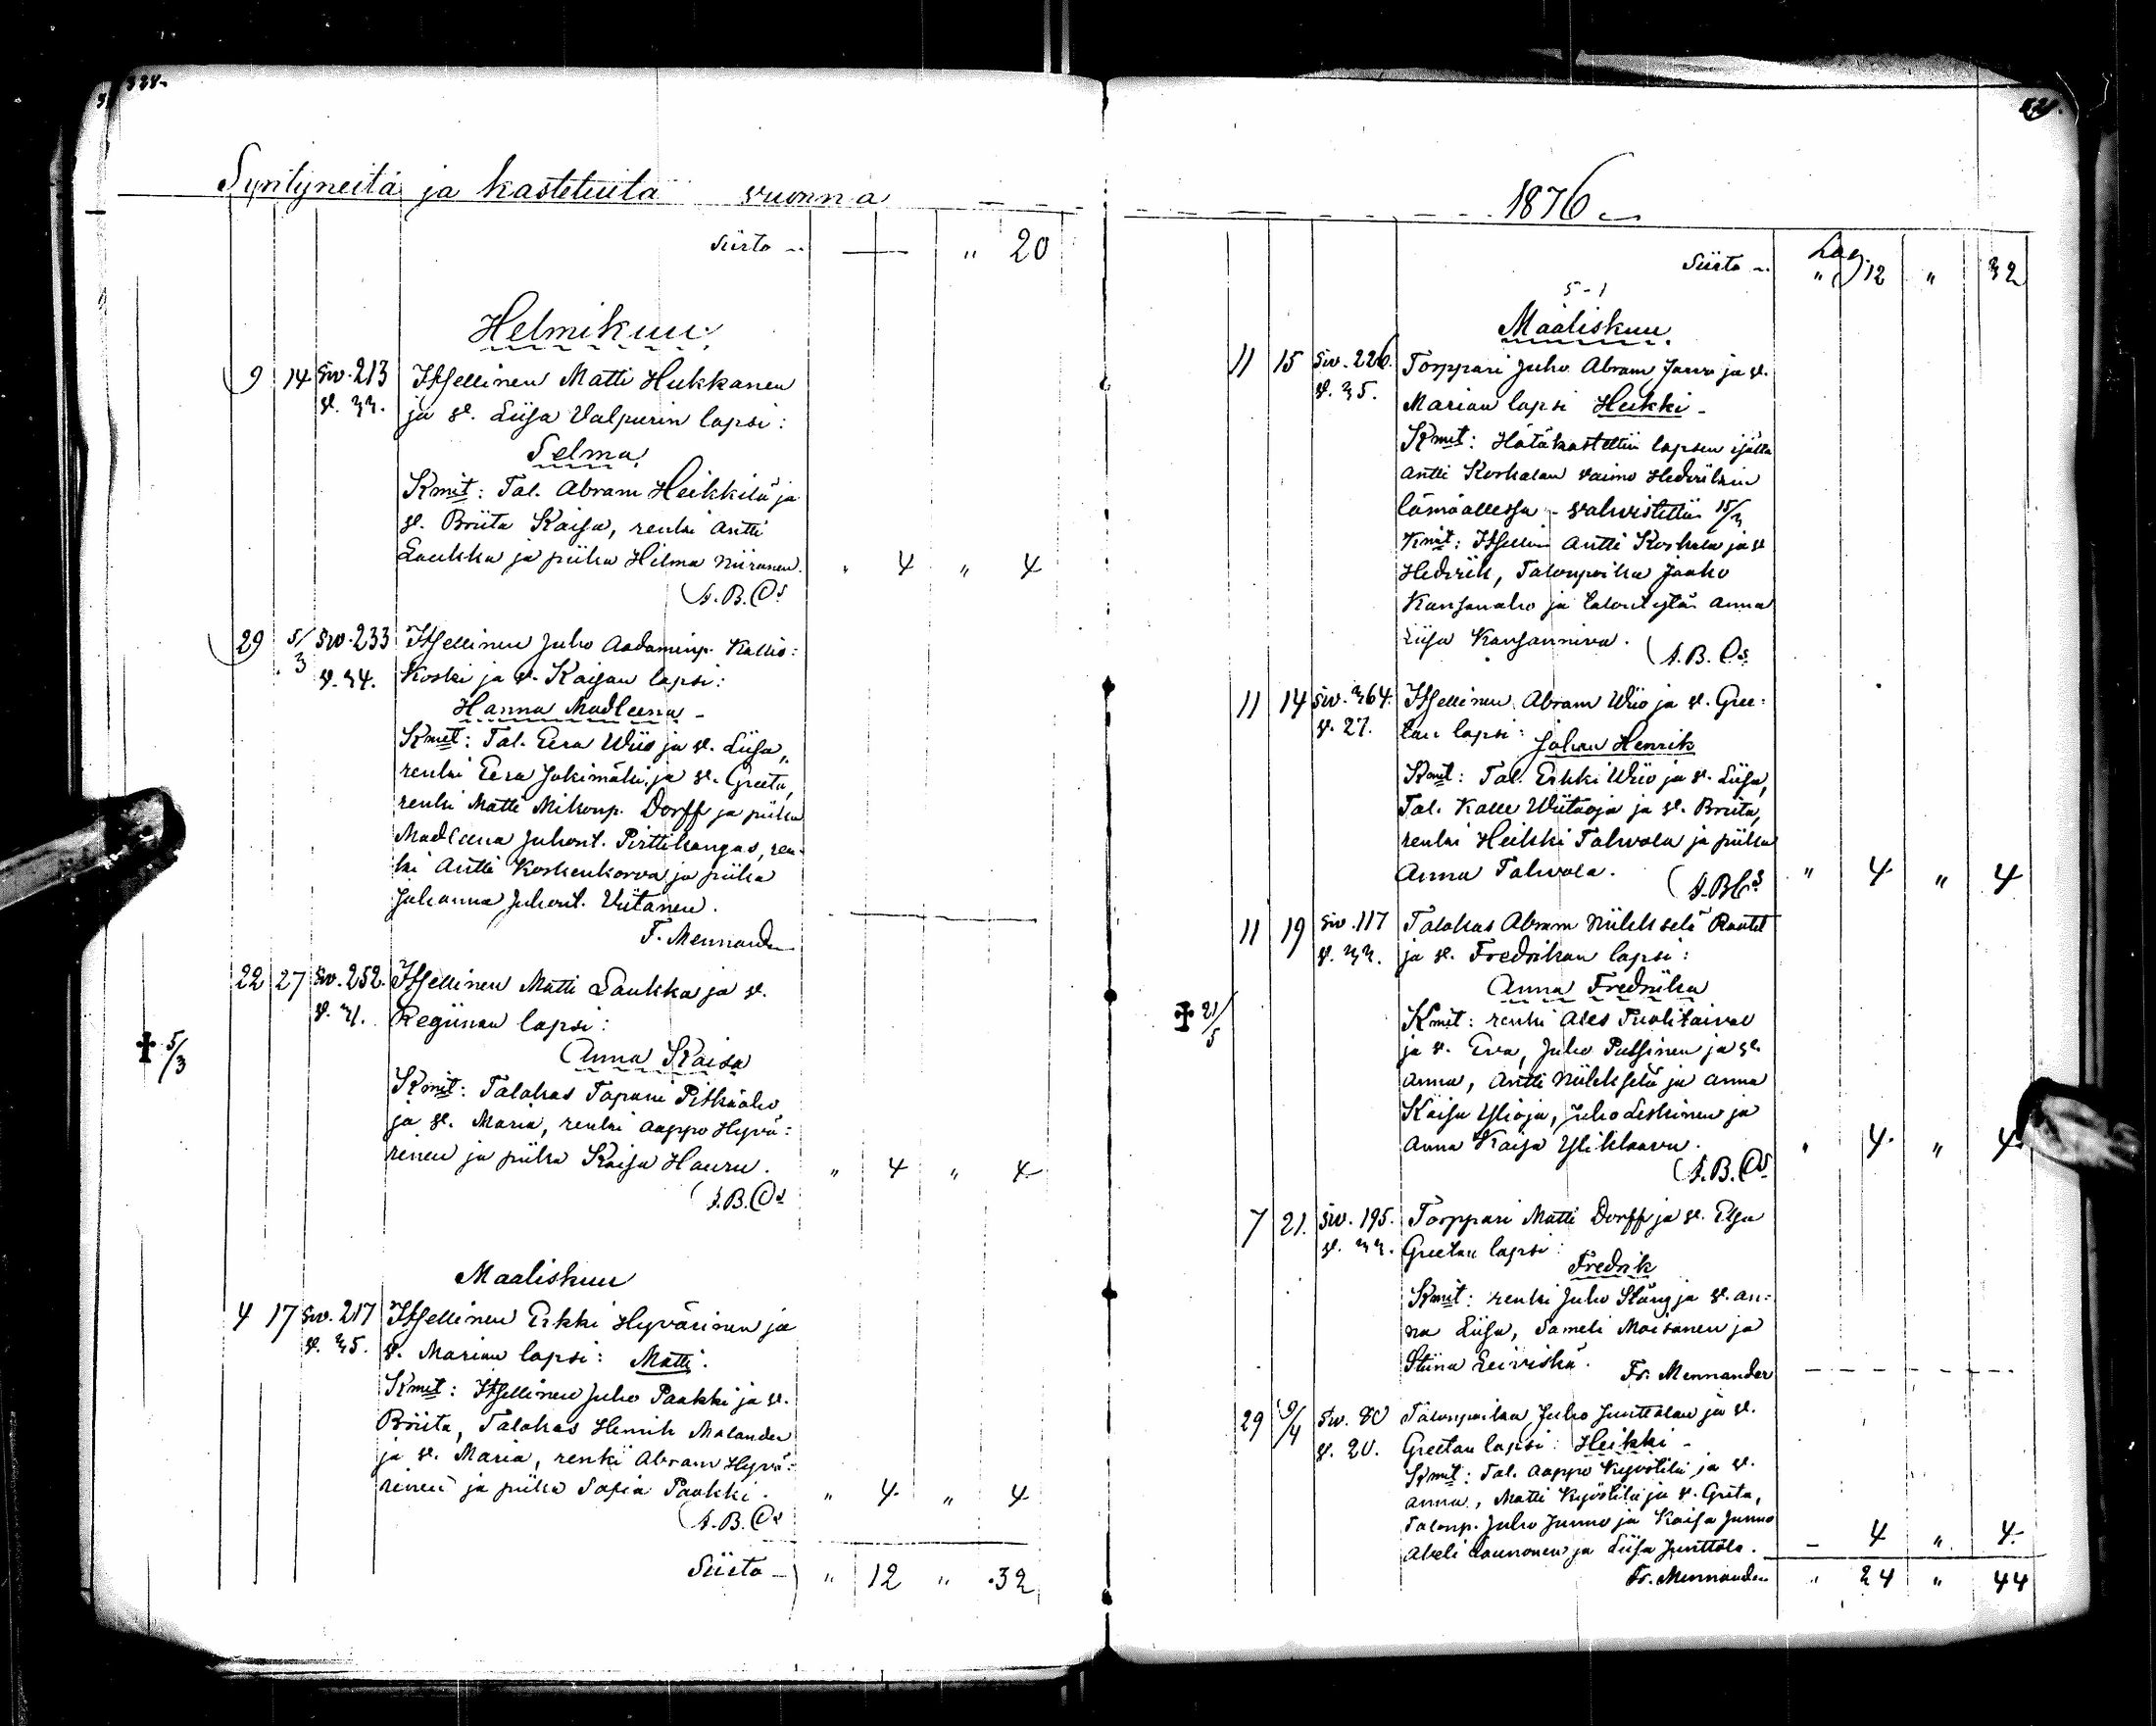 328.
Syntyneitä ja kastetuita vuonna
Siirto -- — " 20
Helmikuu.
9 14 Siv. 213 Itsellinen Matti Hukkanen
v. 33. ja v. Liisa Valpurin lapsi:
Selma
Kmit: Tal. Abram Heikkilä ja
v. Briita Kaisa, renki Antti
Laukka ja piika Hilma Niiranen. " 4 " 4
29 5/3 Siv. 233 Itsellinen Juho Aadaminp. Kallio:
v. 34. koski ja v. Kaisan lapsi:
Hanna Madleena -
Kmit: Tal. Eera Wiio ja v. Liisa,
renki Eera Jokimäki ja v. Greeta,
renki Matti Mikonp. Dorff ja piika
Madleena Juhont. Pirttikangas, ren-
ki Antti Koskenkorva ja piika
Johanna Juhont. Viitanen.
F. Mennander
22 27 Siv. 252. Itsellinen Matti Laukka ja v.
v. 31. Regiinan lapsi:
Anna Kaisa
✝ 5/3
Kmit: Talokas Tapani Pitkäaho
ja v. Maria, renki Aappo Hyvä:
rinen ja piika Kaisa Hauru. " 4 " 4
Maaliskuu
4 17 Siv. 217 Itsellinen Erkki Hyvärinen ja
v. 35. v. Marian lapsi: Matti.
Kmit: Itsellinen Juho Paakki ja v.
Briita, Talokas Henrik Malander
ja v. Maria, renki Abram Hyvä:
rinen ja piika Sofia Paakki. " 4 " 4
Siirto - " 12 " 32
1876
Siirto -- " 12 " 32
5-1
Maaliskuu.
11 15 Siv. 226. Torppari Juho Abram Jarvo ja v.
v. 35. Marian lapsi Heikki -
Kmit: Hätäkastettiin lapsen
Antti Koskelan vaimo
vahvistettiin 15/3
Kmit: Antti Koskela ja v
Hedvik, Talonpoika Jaako
Kansanaho ja talont Anna
Liisa Kansanniva.
11 14 Siv. 364. Itsellinen Abram Wiio ja v. Gree:
v. 27. tan lapsi: Johan Henrik
Kmit: Tal. Erkki Wiio ja v. Liisa,
Tal. Kalle Wiitaoja ja v. Briita,
renki Heikki Tahvola ja piika
Anna Tahvola. " 4 " 4
11 19 Siv. 117 Talokas Abram Niilekselä
v. 33. ja v. Fredrikan lapsi:
Anna Fredriika
✝ 21/5
Kmit: renki Ales Puolitaival
ja v. Eva, Juho Putsinen ja v.
Anna, Antti Niilekselä ja Anna
Kaisa Ylioja, Juho Leskinen ja
Anna Kaisa " 4 " 4
7 21. Siv. 195. Torppari Matti Dorff ja v. Elsa
v. 33. Greetan lapsi:
Fredrik
Kmit: renki Juho Stång ja v. An:
na Liisa, Sameli Moisanen ja
Stiina Leiviskä. Fr. Mennander
29 9/4 Siv. 80 Talonpoika Juho Junttolan ja v.
v. 20. Greetan lapsi: Heikki -
Kmit: Tal. Aappo Kyöstilä ja v.
Anna, Matti Kyöstilä ja v. Greta,
Talonp. Juho Junno ja Kaisa Junno
Abeli Launonen ja Liisa Junttola. - 4 " 4
Fr. Mennander " 24 " 44